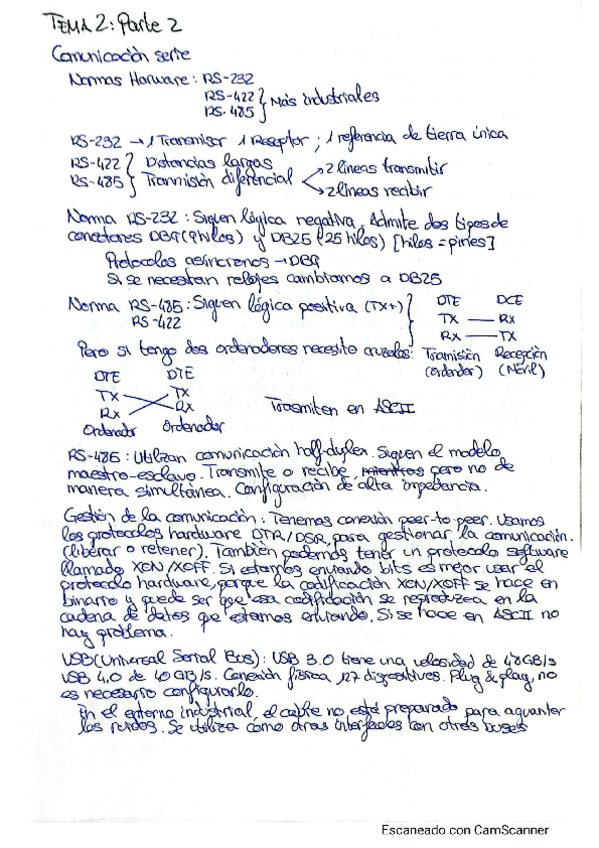 TEMA 2: Parte 2
Comunicación serie
Normas Harware: RS-232
RS-422
RS-485 } Más industriales
RS-232 → 1 Transmisor 1 Receptor; 1 referencia de tierra única
RS-422 } Distancias largas
RS-485 } Tranmisión diferencial → 2 lineas transmitir
→ 2 lineas recibir
Norma RS-232: Siguen lógica negativa. Admite dos tipos de
conectores DB9 (9 hilos) y DB25 (25 hilos) [hilos = pines]
Protocolos asíncronos → DB9
Si se necesitan relojes cambiamos a DB25
Norma RS-485: Siguen lógica positiva (TX+)
RS-422
DTE DCE
TX — Rx
Rx — TX
Pero si tengo dos ordenadores necesito cruzarlos:
Tramisión Recepción
(Ordenador)
DTE DTE
TX TX
Rx Rx
Ordenador Ordenador
Trasmiten en ASCII
RS-485: Utilizan comunicación half-duplex. Siguen el modelo
maestro-esclavo. Transmite o recibe, mientras pero no de
manera simultánea. Configuración de alta impedancia.
Gestión de la comunicación: Tenemos conexión peer-to peer. Usamos
los protocolos hardware DTR/DSR, para gestionar la comunicación.
(liberar o retener). También podemos tener un protocolo software
llamado XON/XOFF. Si estamos enviando bits es mejor usar el
protocolo hardware, porque la codificación XON/XOFF se hace en
binario y puede ser que esa codificación se reproduzca en la
cadena de datos que estamos enviando. Si se hace en ASCII no
hay problema.
USB (Universal Serial Bus): USB 3.0 tiene una velocidad de 4'8 GB/s
USB 4.0 de 40 GB/s. Conexión física 127 dispositivos. Plug & play, no
es necesario configurarlo.
En el entorno industrial, el cable no está preparado para aguantar
los ruidos. Se utiliza como otras interfaces con otros buses
Escaneado con CamScanner